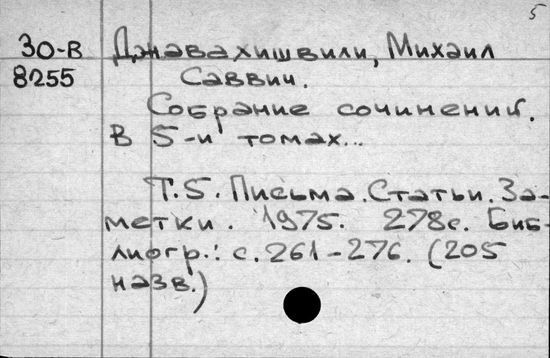 5
30-В Джавахишвили, Михаил
8255 Саввич.
Собрание сочинений.
В 5-и томах...
Т.5. Письма. Статьи. За-
метки. 1975. 278с. Биб-
лиогр.: с.261-276. (205
назв.)